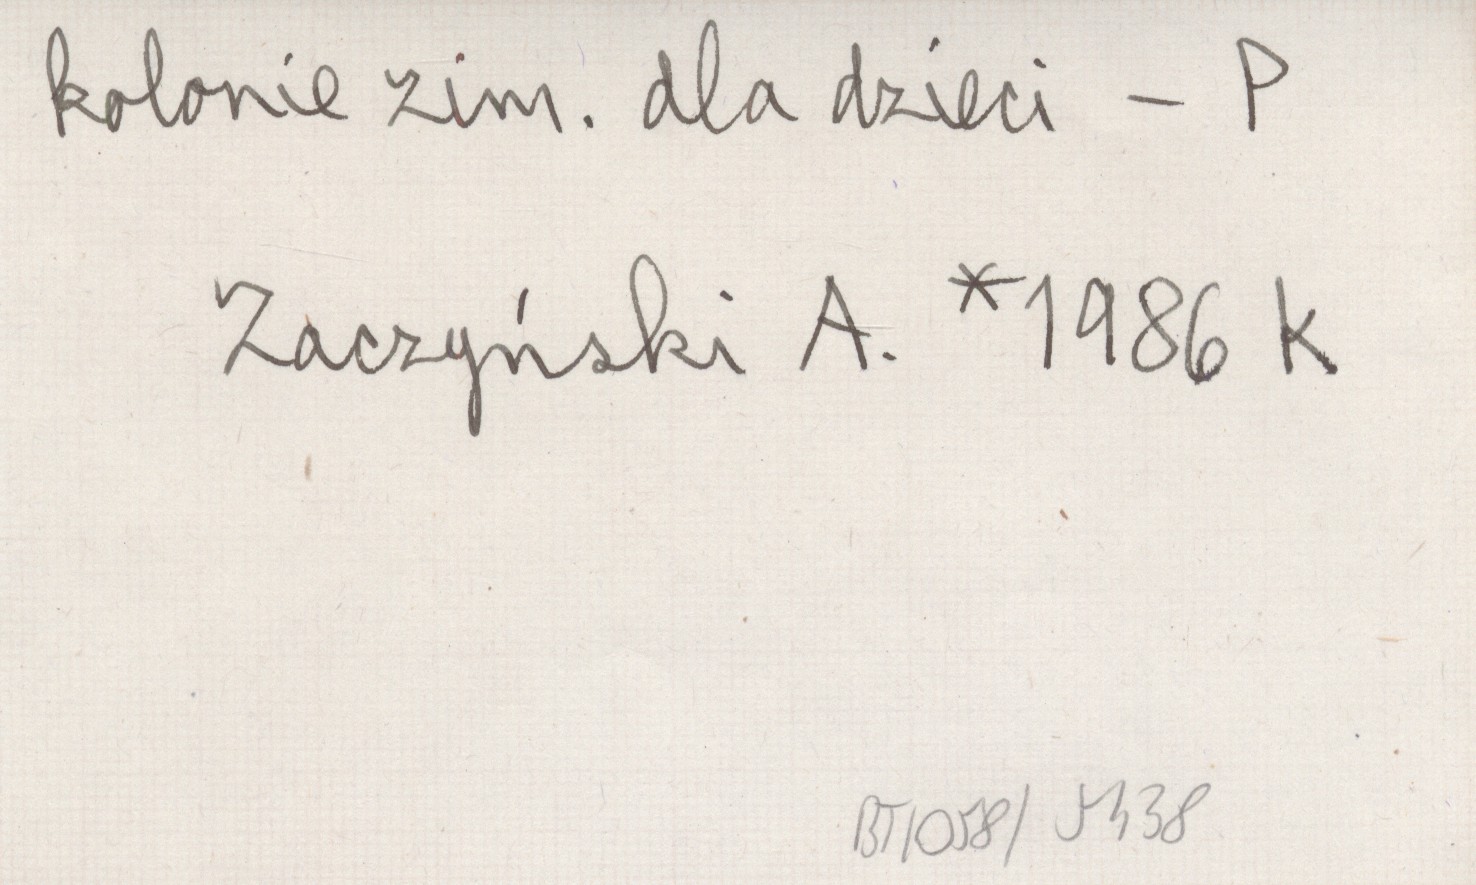 kolonie zim. dla dzieci - P
Zaczyński A. *1986 K
BT/058/